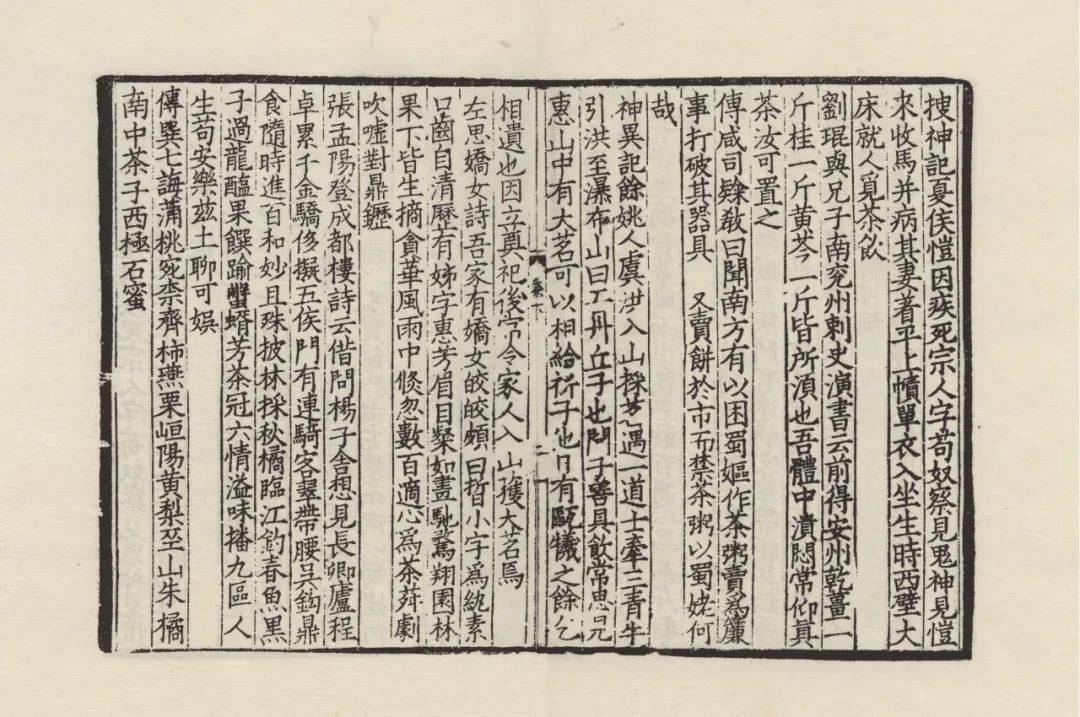 搜神記夏侯愷因疾死宗人字苟奴察見鬼神見愷
來收馬并病其妻著平上幘單衣入坐生時西壁大
床就人覓茶飲
劉琨與兄子南兗州刺史演書云前得安州乾薑一
斤桂一斤黄芩一斤皆所湏也吾體中潰悶常仰真
茶汝可置之
傳咸司隸教曰聞南方有以困蜀嫗作茶粥賣爲簾
事打破其器具　又賣餅於市而禁茶粥以蜀姥何
哉
神異記餘姚人虞洪入山採茗遇一道士牽三青牛
引洪至瀑布山曰丹丘子也聞子善具飲常思見
惠山中有大茗可以相給祈子他日有甌犧之餘乞
相遺也因立奠祀後常令家人入山獲大茗焉
左思嬌女詩吾家有嬌女皎皎頗白晳小字爲紈素
口齒自清歷有姊字惠芳眉目粲如畫馳騖翔園林
果下皆生摘貪華風雨中倏忽數百適心爲茶荈劇
吹噓對鼎䥶
張孟陽登成都樓詩云借問楊子舍想見長卿廬程
卓累千金驕侈擬五侯門有連騎客翠帶腰吳鈎鼎
食隨時進百和妙且殊披林採秋橘臨江釣春魚黑
子過龍醢果饌踰蟹蝑芳茶冠六情溢味播九區人
生苟安樂兹土聊可娛
傳巽七誨蒲桃宛柰齊柿燕栗峘陽黄梨巫山朱橘
南中茶子西極石蜜